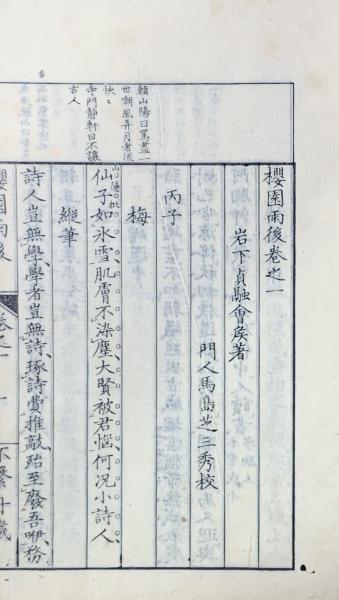 櫻園雨後卷之一
岩下貞融會矦著
門人馬島芝三秀校
丙子
梅
山陽批
仙子如氷雪肌膚不染塵大賢被君惱何况小詩人
縱筆
詩人豈無學學者豈無詩琢詩費推敲殆至廢吾咿務
頼山陽曰罵盡一
世朝風弄月者流
快々
寺門靜軒曰不讓
古人
櫻園雨後
卷之一
一
不累廿歳